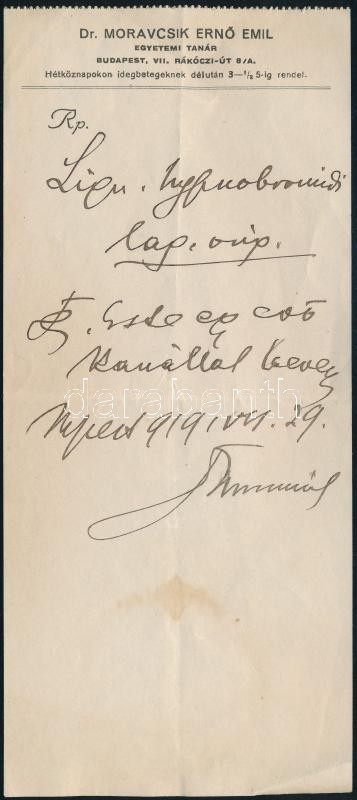 Dr. MORAVCSIK ERNŐ EMIL
EGYETEMI TANÁR
BUDAPEST, VII. RÁKÓCZI-ÚT 8/A.
Hétköznapokon idegbetegeknek délután 3—½ 5-ig rendel.
Rp.
Liqu. hypnobromidi
lag. orig.
Este egy evő
kanállal
darabanth
919. VII. 29.